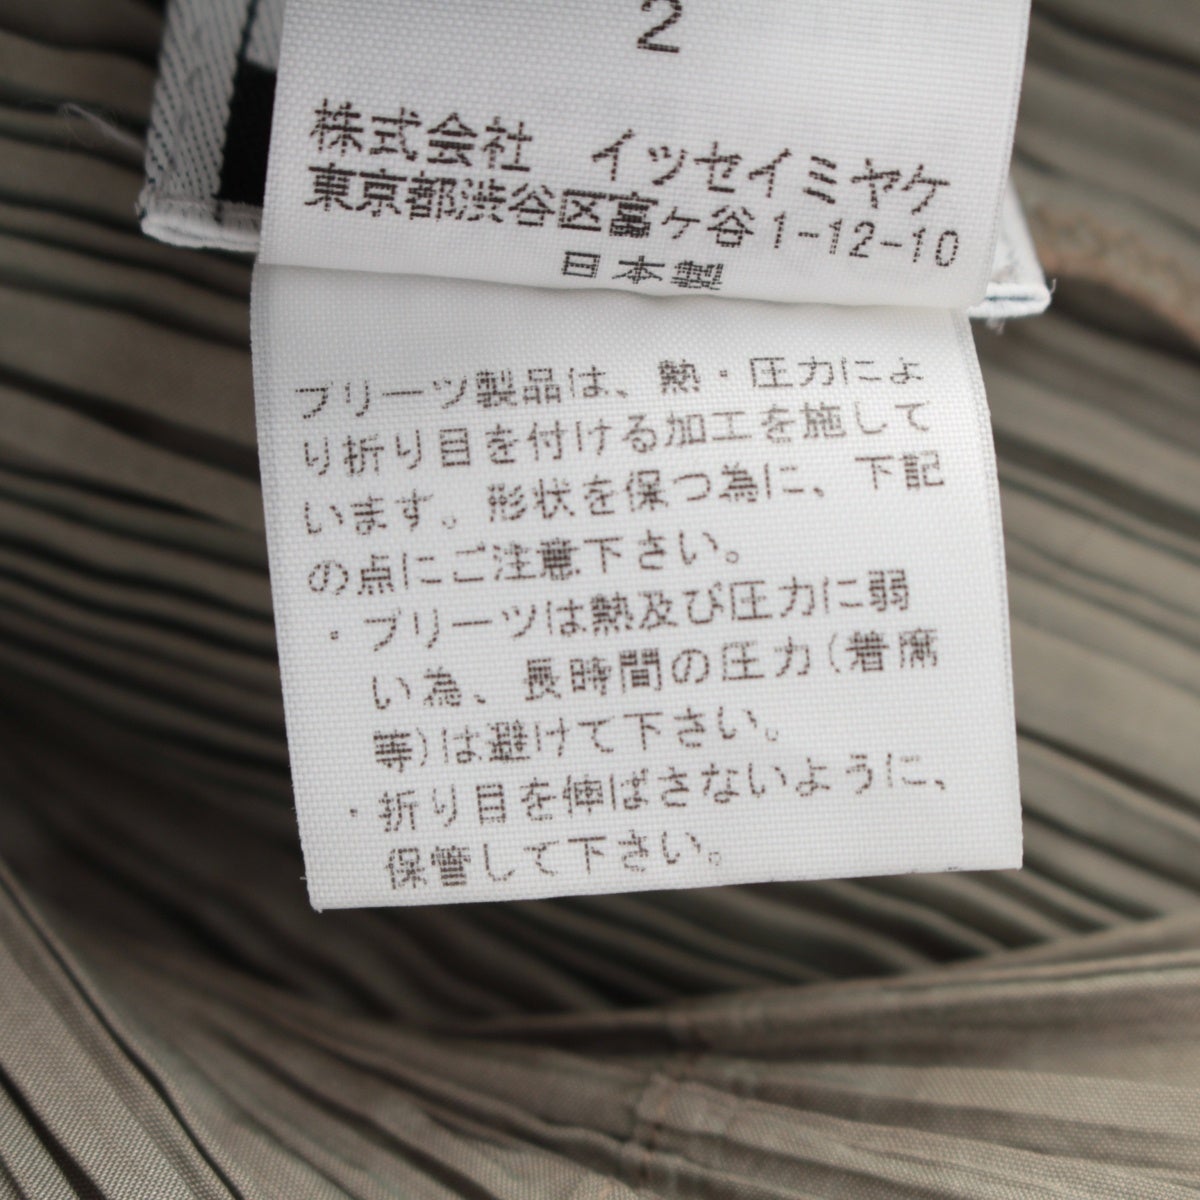 2
株式会社　イッセイミヤケ
東京都渋谷区富ヶ谷1-12-10
日本製
プリーツ製品は、熱・圧力によ
り折り目を付ける加工を施して
います。形状を保つ為に、下記
の点にご注意下さい。
・プリーツは熱及び圧力に弱
い為、長時間の圧力(着席
等)は避けて下さい。
・折り目を伸ばさないように、
保管して下さい。